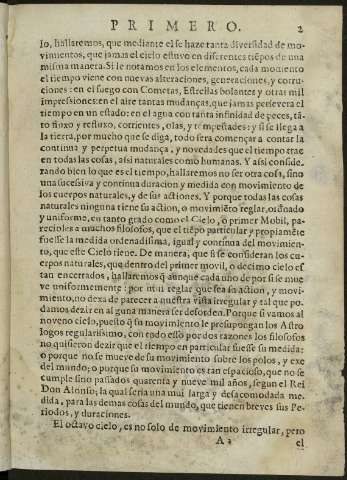 PRIMERO. 2
lo, hallaremos, que mediante el se haze tanta diversidad de mo-
vimientos, que jamas el cielo estuvo en diferentes tiẽpos de una
misma manera. Si le notamos en los elementos, cada momento
el tiempo viene con nuevas alteraciones, generaciones, y corru-
ciones: en el fuego con Cometas, Estrellas bolantes y otras mil
impressiones: en el aire tantas mudanças, que jamas persevera el
tiempo en un estado: en el agua con tanta infinidad de peces, tã-
to fluxo y refluxo, corrientes, olas, y tẽpestades: y si se llega a
la tierra, por mucho que se diga, todo sera començar a contar la
continua y perpetua mudança, y novedades que el tiempo trae
en todas las cosas, assi naturales como humanas. Y assi conside-
rando bien lo que es el tiempo, hallaremos no ser otra cosa, sino
una sucessiva y continua duracion y medida con movimiento de
los cuerpos naturales, y de sus actiones. Y porque todas las cosas
naturales ninguna tiene su action, o movimiẽto reglar, ordẽado
y uniforme, en tanto grado como el Cielo, o primer Mobil, pa-
recioles a muchos filosofos, que el tiẽpo particular y propiamẽte
fuesse la medida ordenadissima, igual y continua del movimien-
to, que este Cielo tiene. De manera, que si se consideran los cu-
erpos naturales, que dentro del primer movil, o decimo cielo es
tan encerrados, hallaremos q̃ aunque cada uno de por si se mue
ve uniformemente: por muy reglar que sea su action, y movi-
miento, no dexa de parecer a nuestra vista irregular y tal que po-
damos dezir en alguna manera ser desorden. Porque si vamos al
noveno cielo, puesto q̃ su movimiento le presupongan los Astro
logos regularissimo, con todo esso por dos razones los filosofos
no quisieron dezir que el tiempo en particular fuesse su medida:
o porque no se mueve de su movimiento sobre los polos, y exe
del mundo; o porque su movimiento es tan espacioso, que no se
cumple sino passados quarenta y nueve mil años, segun el Rei
Don Alonso; la qual seria una mui larga y desacomodada me-
dida, para las demas cosas del mundo, que tienen breves sus Pe-
riodos, y duraciones.
El octavo cielo, es no solo de movimiento irregular, pero
A 2 el